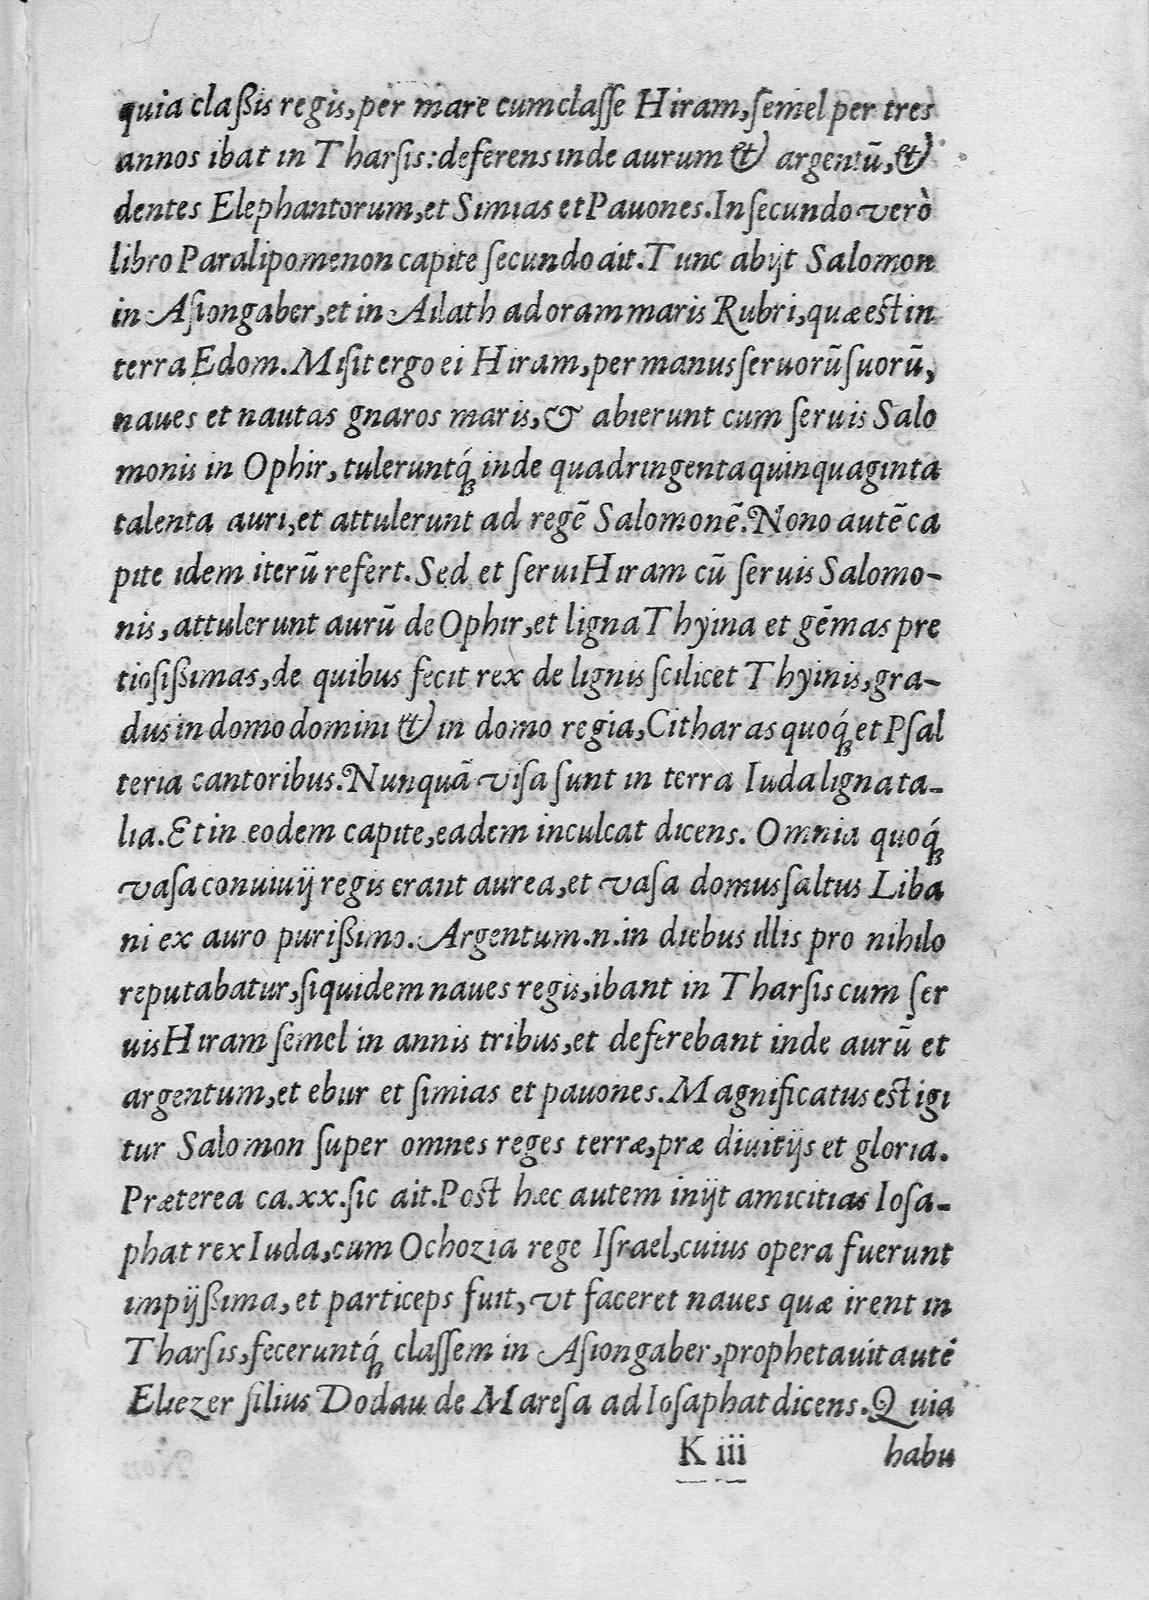 quia claßis regis, per mare cum classe Hiram, ſemel per tres
annos ibat in Tharſis: deferens inde aurum & argentū, &
dentes Elephantorum, et Simias et Pauones. In ſecundo verò
libro Paralipomenon capite ſecundo ait. Tunc abijt Salomon
in Aſiongaber, et in Ailath ad oram maris Rubri, quæ est in
terra Edom. Miſit ergo ei Hiram, per manus ſeruorū ſuorū,
naues et nautas gnaros maris, & abierunt cum ſeruis Salo
monis in Ophir, tuleruntq́; inde quadringenta quinquaginta
talenta auri, et attulerunt ad regē Salomonē. Nono autē ca
pite idem iterū refert. Sed et ſerui Hiram cū ſeruis Salomo-
nis, attulerunt aurū de Ophir, et ligna Thyina et gēmas pre
tioſißimas, de quibus fecit rex de lignis ſcilicet Thyinis, gra-
dus in domo domini & in domo regia, Citharas quoq́; et Pſal
teria cantoribus. Nunquā viſa ſunt in terra Iuda ligna ta-
lia. Et in eodem capite, eadem inculcat dicens. Omnia quoq́;
vaſa conuiuij regis erant aurea, et vaſa domus ſaltus Liba
ni ex auro purißimo. Argentum .n. in diebus illis pro nihilo
reputabatur, ſiquidem naues regis, ibant in Tharſis cum ſer
uis Hiram ſemel in annis tribus, et deferebant inde aurū et
argentum, et ebur et ſimias et pauones. Magnificatus est igi
tur Salomon ſuper omnes reges terræ, præ diuitijs et gloria.
Præterea ca. xx. ſic ait. Post hæc autem inijt amicitias Ioſa-
phat rex Iuda, cum Ochozia rege Iſrael, cuius opera fuerunt
impijßima, et particeps fuit, vt faceret naues quæ irent in
Tharſis, feceruntq́; claſſem in Aſiongaber, prophetauit autē
Eliezer filius Dodau de Mareſa ad Ioſaphat dicens. Quia
K iii habu